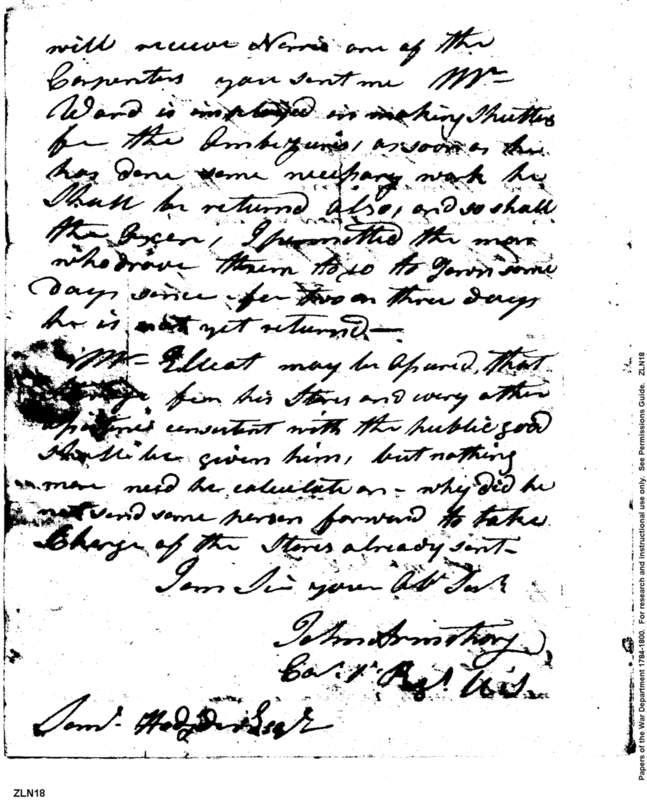 will receive Norris one of the
Carpenters you sent me Mr
Ward is imployed in making Shutters
for the Ambizuris, as soon as he
has done some necessary work he
Shall be returned also, and so shall
the Oxen, I permitted the man
who drove them to go to Town some
days since for two or three days
he is not yet returned—
Mr Elleat may be assured, that
from his Stores and every other
consistent with the public good
shall be given him, but nothing
more need be calculate on - why did he
not send some person forward to take
Charge of the Stores already sent—
I am Sir your Obt Sert
John Armstrong
Cat 1t Regt U.S.
Saml Hodgdon Esqr
ZLN18
Papers of the War Department 1784-1800. For research and instructional use only. See Permissions Guide. ZLN18